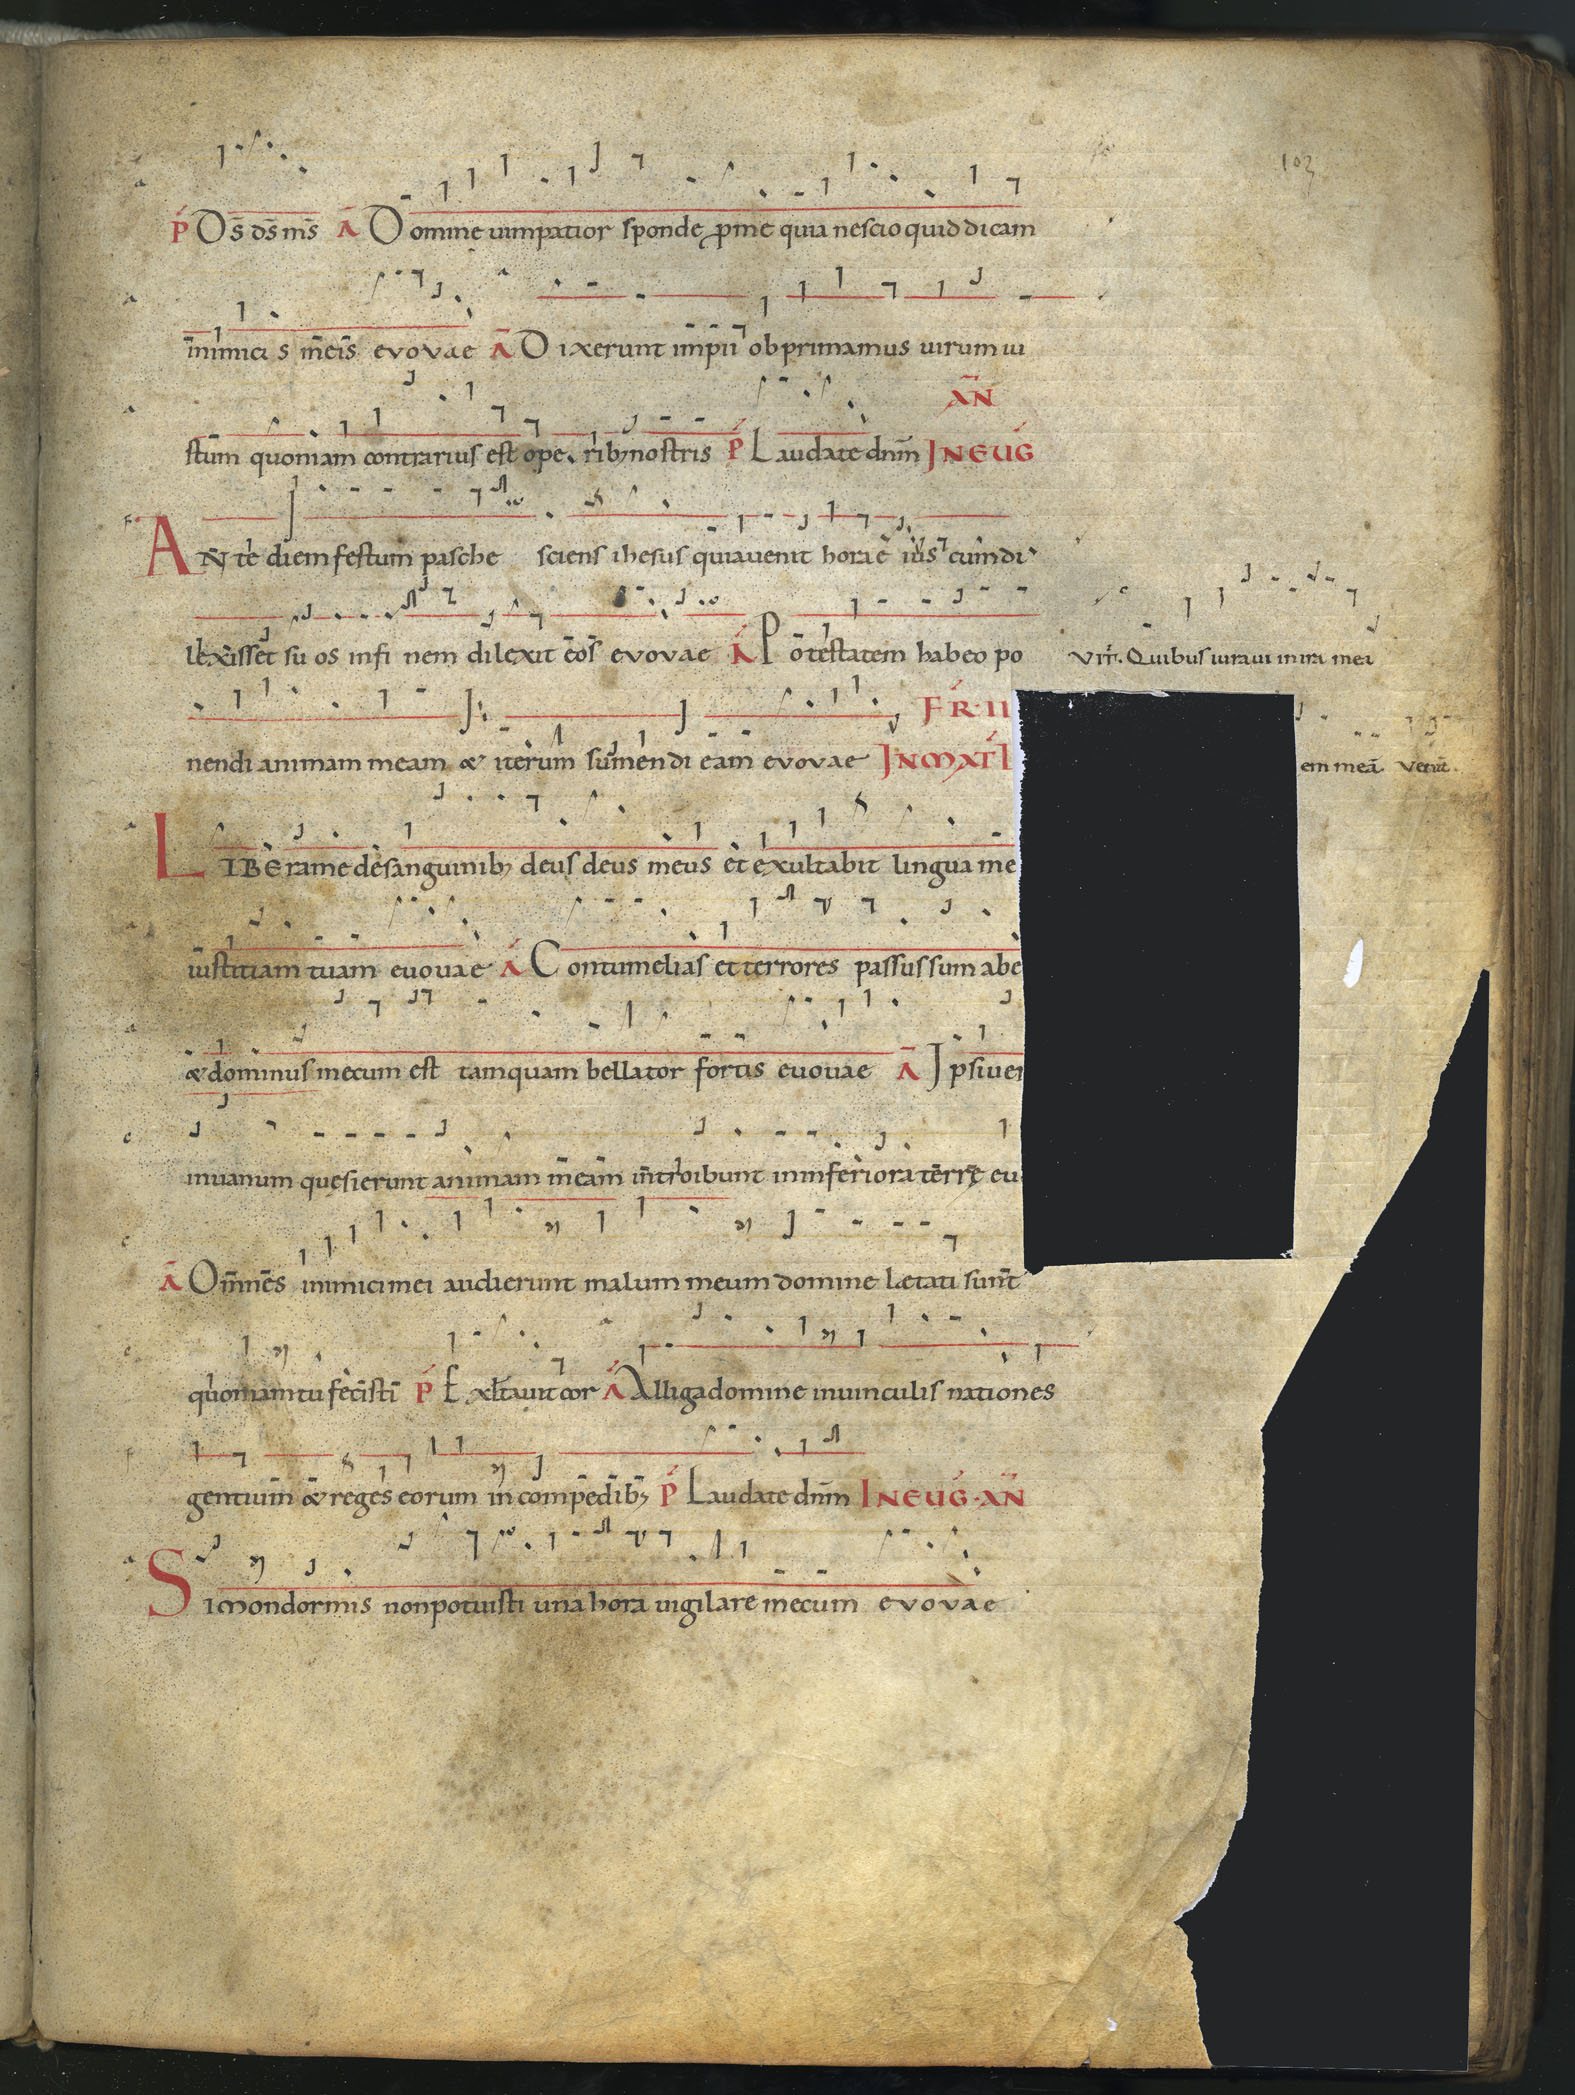 103
P D̄s d̄s m̄s A Domine uim patior sponde ꝓ me quia nescio quid dicam
inimicis meis evovae A Dixerunt impii obprimamus uirum iu
AN
stum quoniam contrarius est operibꝫ nostris P Laudate dnm̄ IN EUG
ANte diem festum pasche sciens ihesus quia uenit hora ē ius cum di
lexisset suos in finem dilexit eos evovae A Potestatem habeo po
VIR. Quibus iuraui in ira mea
FR II
nendi animam meam & iterum sumendi eam evovae IN MAT L
em meā Venit
LIBERA me de sanguinibꝫ deus deus meus et exultabit lingua me
iustitiam tuam euouae A Contumelias et terrores passus sum ab e
& dominus mecum est tamquam bellator fortis euouae A Ipsi uer
in uanum quesierunt animam meam introibunt in inferiora terrę eu
A Omnes inimici mei audierunt malum meum domine lætati sunt
quoniam tu fecisti P Exltauit cor A Alliga domine in uinculis nationes
gentium & reges eorum in compedibꝫ P Laudate dnm̄ IN EUG · AN
SIMON dormis non potuisti una hora uigilare mecum evovae